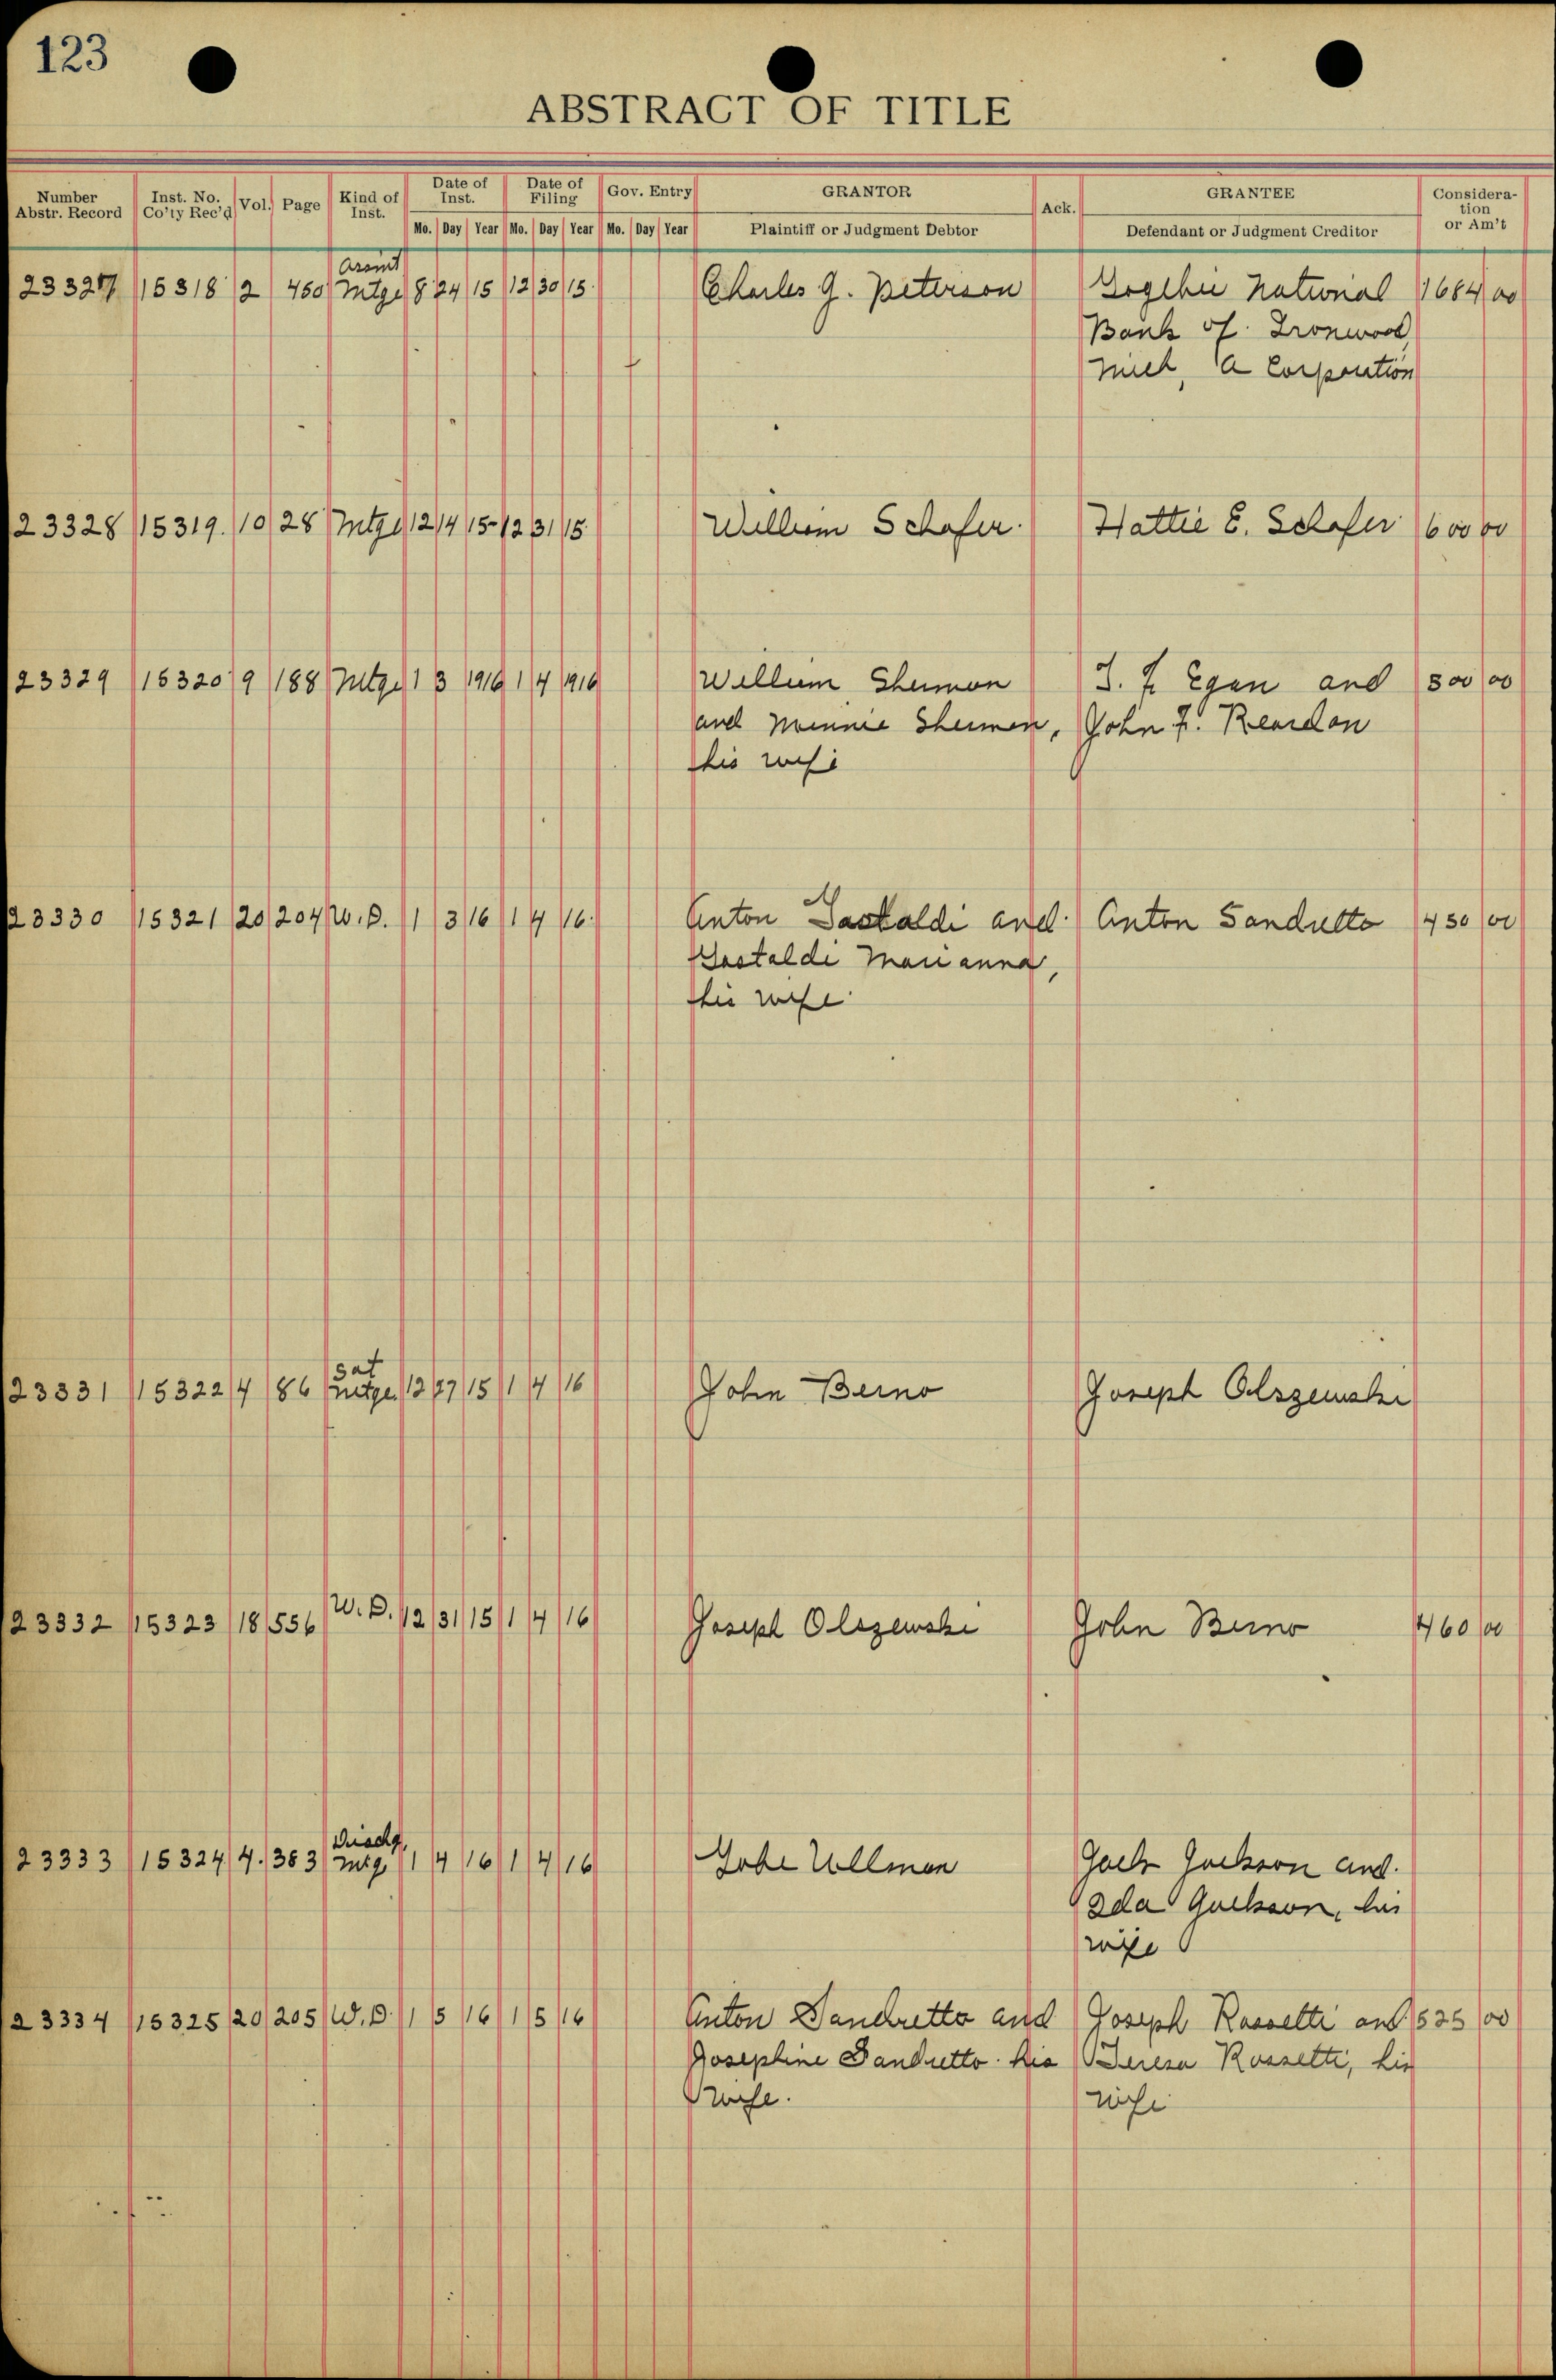 123
ABSTRACT OF TITLE
Number Abstr. Record Inst. No. Co'ty Rec'd Vol. Page Kind of Inst. Date of Inst. Date of Filing Gov. Entry GRANTOR Ack. GRANTEE Consideration or Am't
Mo. Day Year Mo. Day Year Mo. Day Year Plaintiff or Judgment Debtor Defendant or Judgment Creditor
23327 15318 2 450 Mtge 8 24 15 12 30 15 Charles G. Peterson Gogebic National 1684 00
Bank of Ironwood,
Mich, a Corporation
23328 15319. 10 28 Mtge 12 14 15 12 31 15 William Schafer. Hattie E. Schafer 600 00
23329 15320 9 188 Mtge 1 3 1916 1 4 1916 William Sherman J. F. Egan and 300 00
and Minnie Sherman, John F. Reardon
his wife
23330 15321 20 204 W.D. 1 3 16 1 4 16. Anton Gastaldi and Anton Sandretto 450 00
Gastaldi Marianna,
his wife
Sat
23331 15322 4 86 Mtge 12 27 15 1 4 16 John Berno Joseph Olszewski
23332 15323 18 556 W.D. 12 31 15 1 4 16 Joseph Olszewski John Berno 460 00
Dischg,
23333 15324 4. 383 Mtg. 1 4 16 1 4 16 Gabe Ullman Jack Jackson and.
Ada Jackson, his
wife
23334 15325 20 205 W.D. 1 5 16 1 5 16 Anton Sandretto and Joseph Rossetti and 525 00
Josephine Sandretto his Teresa Rossetti, his
wife. wife